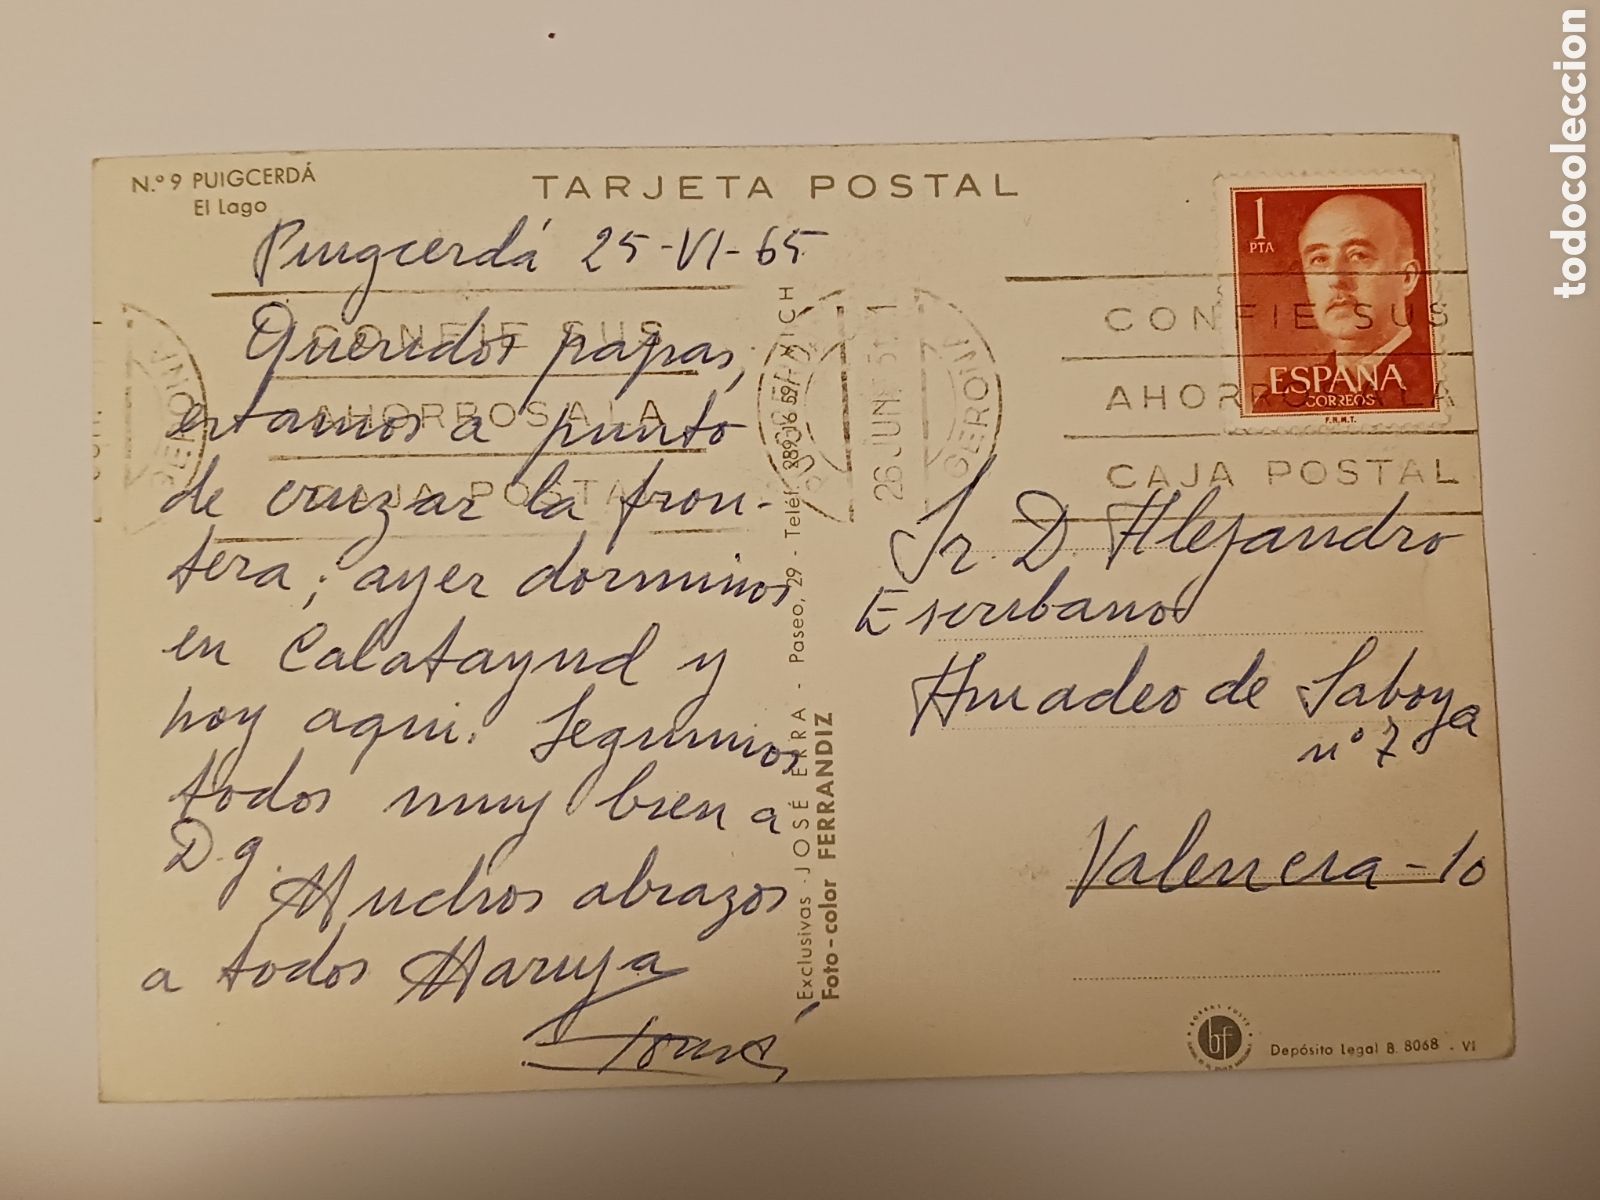 N.º 9 PUIGCERDÁ
El Lago
TARJETA POSTAL
Puigcerdá 25-VI-65
Queridos papas,
estamos a punto
de cruzar la fron-
tera; ayer dormimos
en Calatayud y
hoy aqui. Seguimos
todos muy bien a
D.g.
Muchos abrazos
a todos Maruja
Exclusivas JOSÉ ERRA - Paseo, 29 - Teléf.
Foto-color FERRANDIZ
1
PTA
ESPAÑA
CORREOS
F.N.M.T.
CONFIE SUS
AHORROS A LA
CAJA POSTAL
CONFIE SUS
AHORROS A LA
CAJA POSTAL
26 JUN.
GERONA
Sr. D. Alejandro
Escribano
Amadeo de Saboya
nº 7
Valencia-10
bf
Depósito Legal B. 8068 - VI
todocoleccion